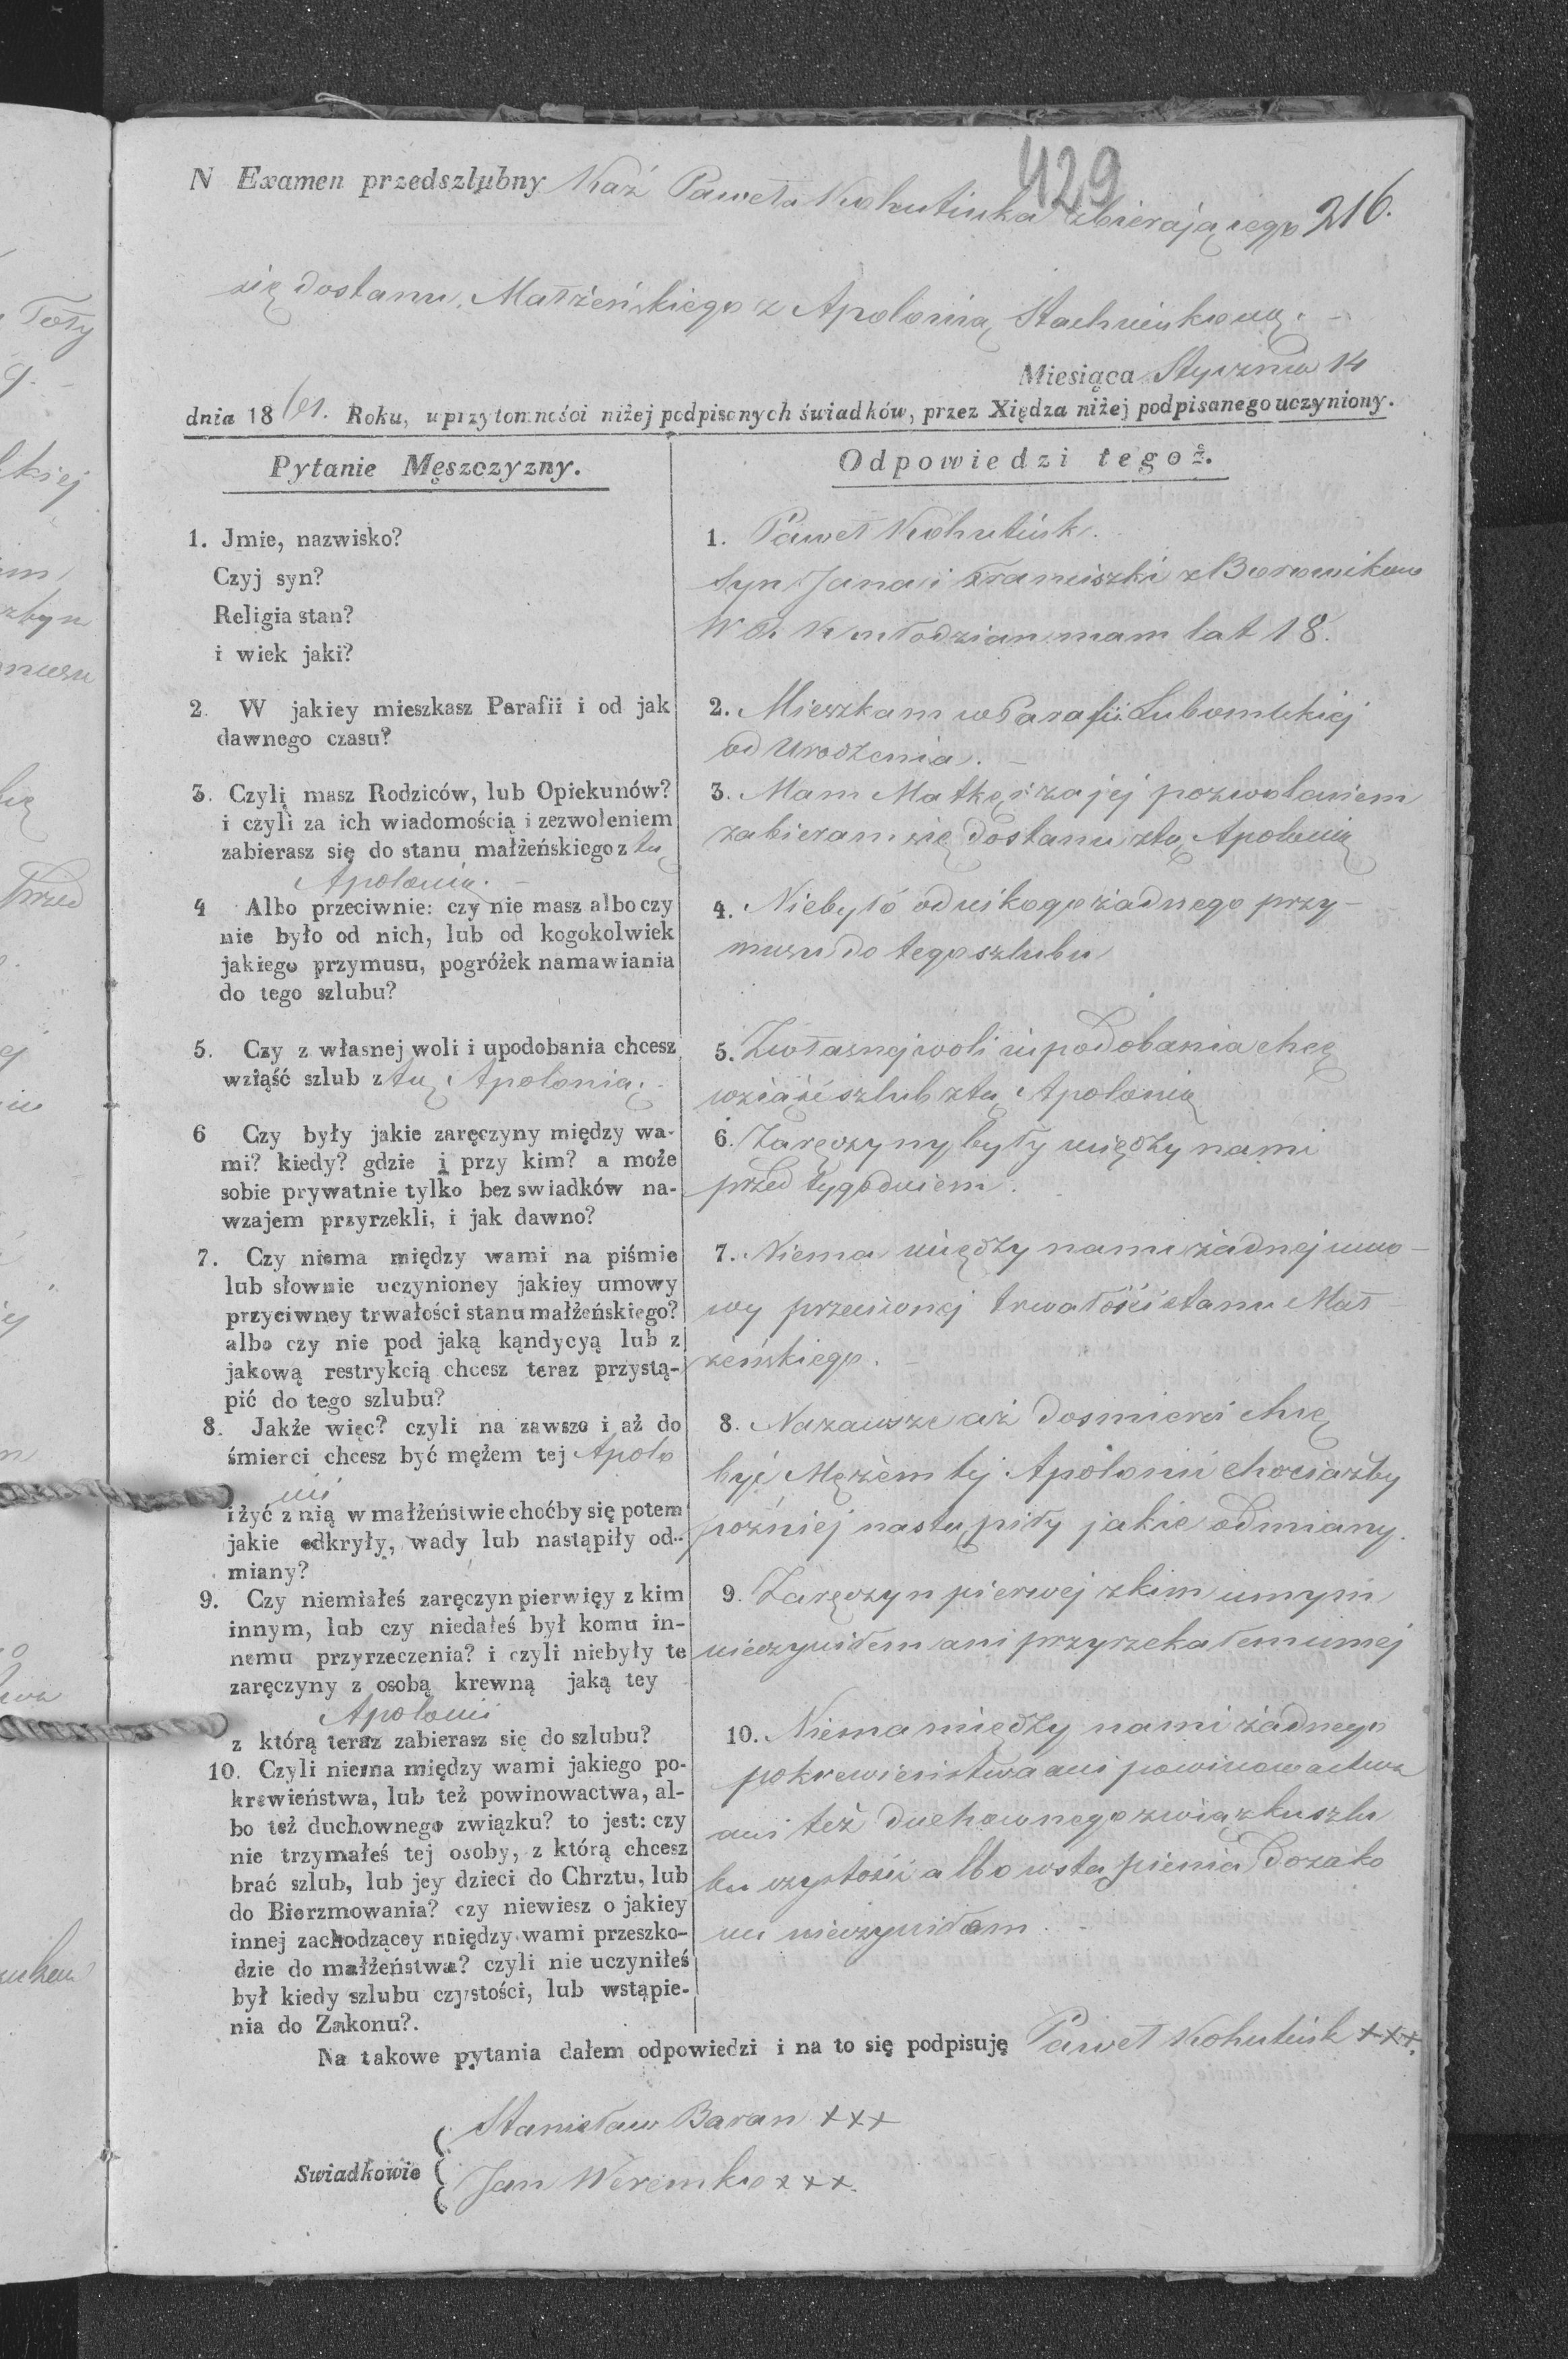 429
N Examen przedszlubny Kaź Paweła Kohutiuka zbierającego 216.
się dostanu Małżeńskiego z Apolonią Stachniukową.
Miesiąca Stycznia 14
dnia 1861. Roku, w przytomności niżej podpisanych świadków, przez Xiędza niżej podpisanego uczyniony.
Pytanie Męszczyzny.
1. Jmie, nazwisko?
Czyj syn?
Religia stan?
i wiek jaki?
2. W jakiey mieszkasz Parafii i od jak
dawnego czasu?
3. Czyli masz Rodziców, lub Opiekunów?
i czyli za ich wiadomością i zezwoleniem
zabierasz się do stanu małżeńskiego z tą
Apolonią.
4 Albo przeciwnie: czy nie masz albo czy
nie było od nich, lub od kogokolwiek
jakiego przymusu, pogróżek namawiania
do tego szlubu?
5. Czy z własnej woli i upodobania chcesz
wziąść szlub z tą Apolonią.
6 Czy były jakie zaręczyny między wa-
mi? kiedy? gdzie i przy kim? a może
sobie prywatnie tylko bez swiadków na-
wzajem przyrzekli, i jak dawno?
7. Czy niema między wami na piśmie
lub słownie uczynioney jakiey umowy
przyciwney trwałości stanu małżeńskiego?
albo czy nie pod jaką kąndycyą lub z
jakową restrykcią chcesz teraz przystą-
pić do tego szlubu?
8. Jakże więc? czyli na zawsze i aż do
śmierci chcesz być mężem tej Apolo
nii
i żyć z nią w małżeństwie choćby się potem
jakie odkryły, wady lub nastąpiły od-
miany?
9. Czy niemiałeś zaręczyn pierwięy z kim
innym, lub czy niedałeś był komu in-
nemu przyrzeczenia? i czyli niebyły te
zaręczyny z osobą krewną jaką tey
Apolonii
z którą teraz zabierasz się do szlubu?
10. Czyli niema między wami jakiego po-
krewieństwa, lub też powinowactwa, al-
bo też duchownego związku? to jest: czy
nie trzymałeś tej osoby, z którą chcesz
brać szlub, lub jey dzieci do Chrztu, lub
do Bierzmowania? czy niewiesz o jakiey
innej zachodzącey między wami przeszko-
dzie do małżeństwa? czyli nie uczyniłeś
był kiedy szlubu czystości, lub wstąpie-
nia do Zakonu?.
Odpowiedzi tegoż.
1. Paweł Kohutiuk.
Syn Jana i Franciszki z Borowików
W. O. K młodzian mam lat 18.
2. Mieszkam w Parafii Lubomlskiej
od Urodzenia.
3. Mam Matkę i za jej pozwoleniem
zabieram się dostanu z tą Apolonią
4. Niebyło od nikogo żadnego przy-
musu do tego szlubu
5. Z własnej woli i upodobania chcę
wziąść szlub z tą Apolonią
6. Zaręczyny były między nami
przed tygodniem.
7. Niema między nami żadnej umo-
wy przeciwnej trwałości stanu Mał
żeńskiego.
8. Nazawsze aż dosmierci chcę
być Mężem tej Apolonii chociażby
pozniej nastąpiły jakie odmiany.
9. Zaręczyn pierwej z kim innym
nieczyniłem ani przyrzekałem innej
10. Niema między nami żadnego
pokrewieństwa ani powinowactwa
ani też duchownego związku szlu
bu czystości albo wstąpienia do zako
nu nieczyniłem.
Na takowe pytania dałem odpowiedzi i na to się podpisuję Paweł Kohutiuk +++.
Stanisław Baran +++
Swiadkowie
Jan Weremko +++.